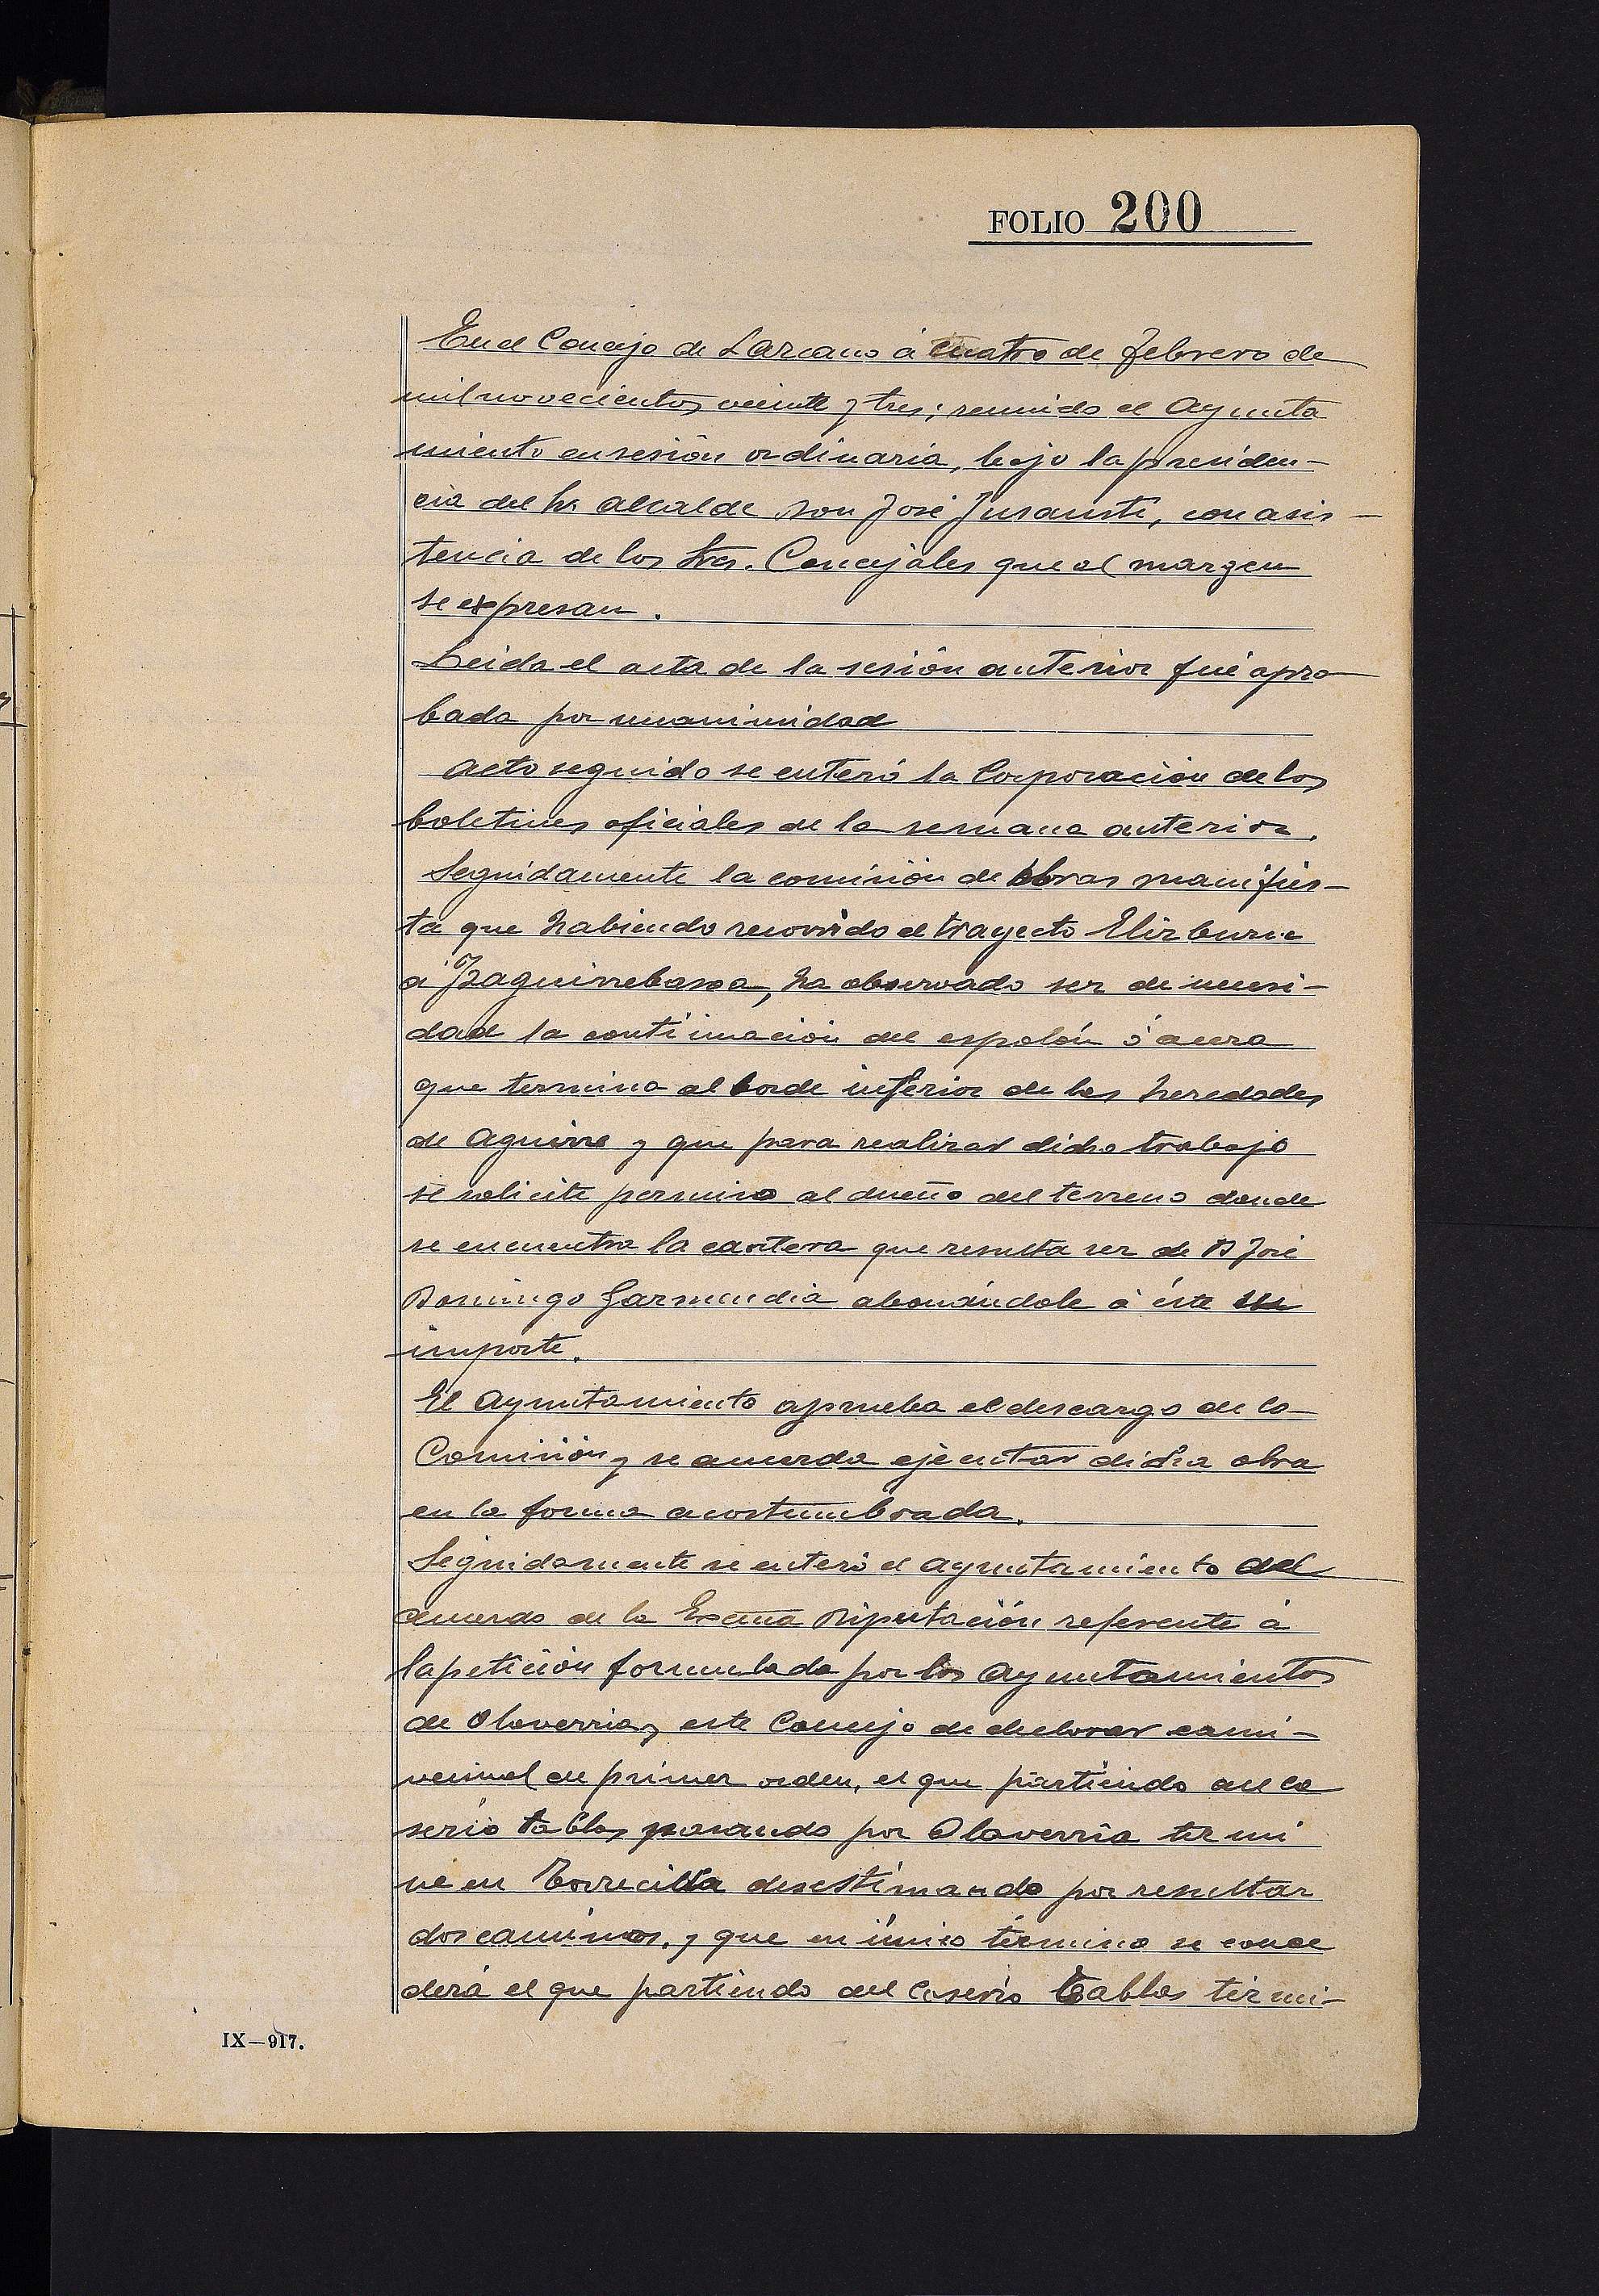 FOLIO 200
En el Concejo de Lazcano á cuatro de febrero de
mil novecientos veinte y tres; reunido el Ayunta
miento en sesión ordinaria, bajo la presiden-
cia del Sr. Alcalde Don José Insausti, con asis-
tencia de los Sres. Concejales que al margen
se expresan.
Leida el acta de la sesión anterior fué apro
bada por unanimidad
Acto seguido se enteró la Corporación de los
boletines oficiales de la semana anterior.
Seguidamente la comisión de obras manifies-
ta que habiendo recorrido el trayecto
á ha observado ser de necesi-
dad la continuación del espolón ó acera
que termina al borde inferior de las heredades
de Aguirre y que para realizar dicho trabajo
se solicite permiso al dueño del terreno donde
se encuentra la cantera que resulta ser de D José
Domingo Garmendia abonándole á éste su
importe.
El Ayuntamiento aprueba el descargo de la
Comisión y se acuerda ejecutar dicha obra
en la forma acostumbrada.
Seguidamente se enteró el Ayuntamiento del
acuerdo de la Excma Diputación referente á
la petición formulada por los Ayuntamientos
de Olaverria y este Concejo de declarar cami-
vecinal de primer orden, el que partiendo del ca
serio tablas pasando por Olaverria termi
ne en Torrecilla desestimando por resultar
dos caminos, y que en único término se conce
derá el que partiendo del Caserio Tablas termi-
IX—917.